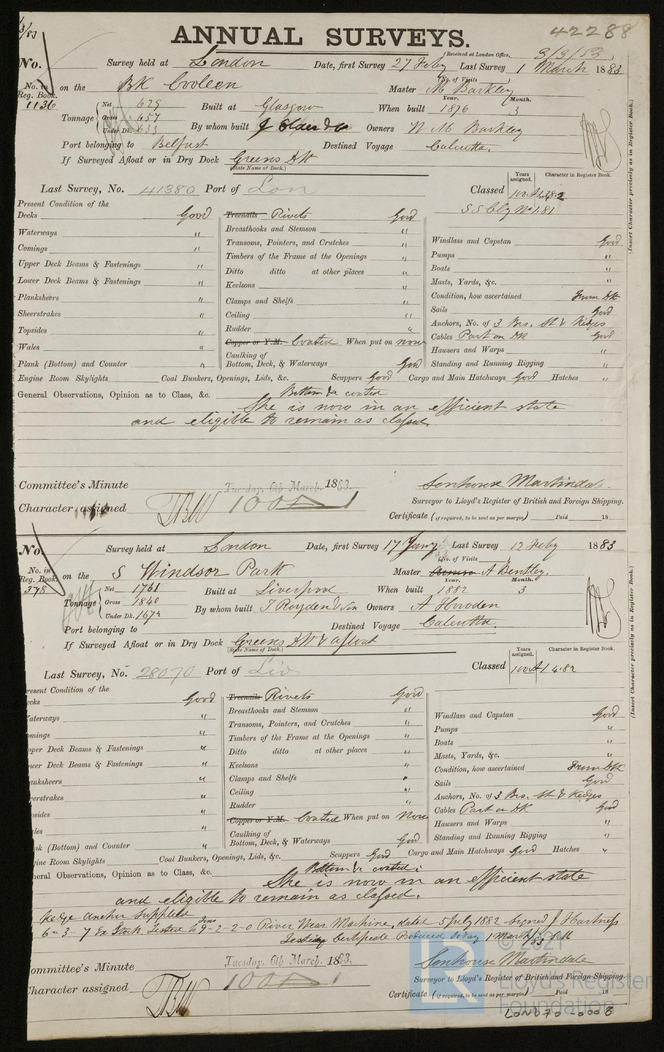 3/83
42288
ANNUAL SURVEYS.
(Received at London Office, 3/3/83)
No. Survey held at London Date, first Survey 27 Feby Last Survey 1 March 1883
(No. of Visits)
No. in Reg. Book. 1136 on the BK Cooleen Master M. Barkley
Tonnage Net 629 Gross 657 Under Dk. 633 Built at Glasgow When built Year. 1876 Month. 3
By whom built J Elder & Co Owners W M Barkley
Port belonging to Belfast Destined Voyage Calcutta
If Surveyed Afloat or in Dry Dock Greens DK
(State Name of Dock.)
Last Survey, No. 41380 Port of Lon Classed Years assigned. Character in Register Book.
(Insert Character precisely as in Register Book.)
Present Condition of the
Decks Good
Waterways "
Comings "
Upper Deck Beams & Fastenings "
Lower Deck Beams & Fastenings "
Planksheers "
Sheerstrakes "
Topsides "
Wales "
Plank (Bottom) and Counter "
Treenails Rivets Good
Breasthooks and Stemson "
Transoms, Pointers, and Crutches "
Timbers of the Frame at the Openings "
Ditto ditto at other places "
Keelsons "
Clamps and Shelfs "
Ceiling "
Rudder "
Copper or Y.M. Coated When put on now
Caulking of
Bottom, Deck, & Waterways Good
Windlass and Capstan Good
Pumps "
Boats "
Masts, Yards, &c. "
Condition, how ascertained From DK
Sails Good
Anchors, No. of 3 Brs. St & Kedges
Cables Part on DK Good
Hausers and Warps "
Standing and Running Rigging "
Engine Room Skylights Coal Bunkers, Openings, Lids, &c. Scuppers Good Cargo and Main Hatchways Good Hatches "
General Observations, Opinion as to Class, &c. Bottom &c coated
She is now in an efficient state
and eligible to remain as classed
Committee's Minute Tuesday, 6th March, 1883.
Senhouse Martindale
Surveyor to Lloyd's Register of British and Foreign Shipping.
Character assigned 100A1
Certificate (if required, to be sent as per margin) Paid 18
No. Survey held at London Date, first Survey 17 Jany Last Survey 12 Feby 1883
(No. of Visits)
No. in Reg. Book. 378 on the S Windsor Park Master A Bentley
Tonnage Net 1761 Gross 1848 Under Dk. 1672 Built at Liverpool When built Year. 1882 Month. 3
By whom built T Royden & Son Owners A Howden
Port belonging to Destined Voyage Calcutta
If Surveyed Afloat or in Dry Dock Greens DK & afloat
(State Name of Dock.)
Last Survey, No. 28070 Port of Liv Classed Years assigned. Character in Register Book. 100A1 4.82
(Insert Character precisely as in Register Book.)
resent Condition of the
ecks Good
aterways "
omings "
pper Deck Beams & Fastenings "
ower Deck Beams & Fastenings "
anksheers "
eerstrakes "
psides "
ales "
ank (Bottom) and Counter "
Treenails Rivets Good
Breasthooks and Stemson "
Transoms, Pointers, and Crutches "
Timbers of the Frame at the Openings "
Ditto ditto at other places "
Keelsons "
Clamps and Shelfs "
Ceiling "
Rudder "
Copper or Y.M. Coated When put on Now
Caulking of
Bottom, Deck, & Waterways Good
Windlass and Capstan Good
Pumps "
Boats "
Masts, Yards, &c. "
Condition, how ascertained From DK
Sails Good
Anchors, No. of 3 Brs. St & Kedges
Cables Part on DK Good
Hausers and Warps "
Standing and Running Rigging "
gine Room Skylights Coal Bunkers, Openings, Lids, &c. Scuppers Good Cargo and Main Hatchways Good Hatches "
eneral Observations, Opinion as to Class, &c. Bottom &c coated:
She is now in an efficient state
and eligible to remain as classed.
Kedge anchor supplied
6-3-7 Ex Stock Tested 9-2-2-0 River Wear Machine, dated 5 July 1882 signed J Hartness
Testing Certificate Produced today 1 March/83
Senhouse Martindale
Committee's Minute Tuesday, 6th March, 1883.
Surveyor to Lloyd's Register of British and Foreign Shipping.
Character assigned 100A1
Certificate (if required, to be sent as per margin) Paid 18
© 2021
Lloyd's Register
Foundation
LON070-0008